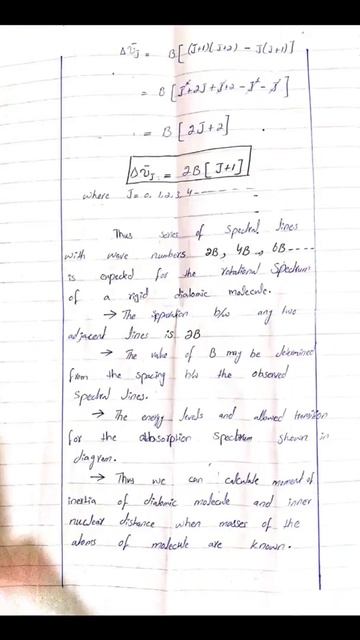 Δν̄J = B[(J+1)(J+2) - J(J+1)]
= B[J²+2J+J+2 - J² - J]
= B[2J+2]
Δν̄J = 2B[J+1]
where J = 0, 1, 2, 3, 4 -------
Thus series of Spectral lines
with wave numbers 2B, 4B, 6B ----
is expected for the rotational Spectrum
of a rigid diatomic molecule.
→ The b/w any two
adjacent lines is 2B
→ The value of B may be determined
from the spacing b/w the observed
Spectral lines.
→ The energy levels and allowed transition
for the absorption Spectrum shown in
diagram.
→ Thus we can calculate moment of
inertia of diatomic molecule and inner
nuclear distance when masses of the
atoms of molecule are known.